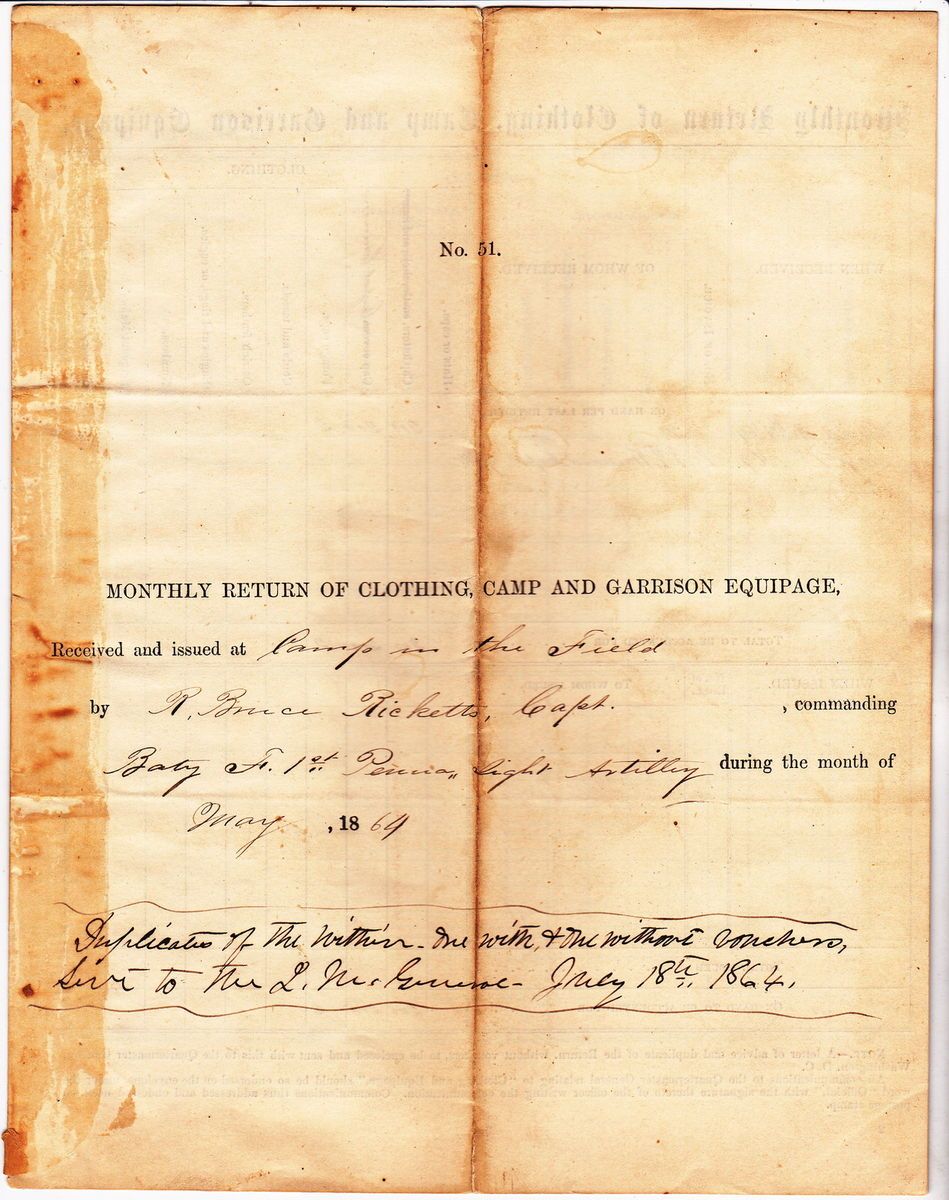 No. 51.
MONTHLY RETURN OF CLOTHING, CAMP AND GARRISON EQUIPAGE,
Received and issued at Camp in the Field
by R. Bruce Ricketts, Capt. , commanding
Baty F. 1st Penna,, Light Artillery during the month of
May , 1864
Duplicates of the within - one with, & one without vouchers,
sent to the Q. M. General - July 18th 1864.